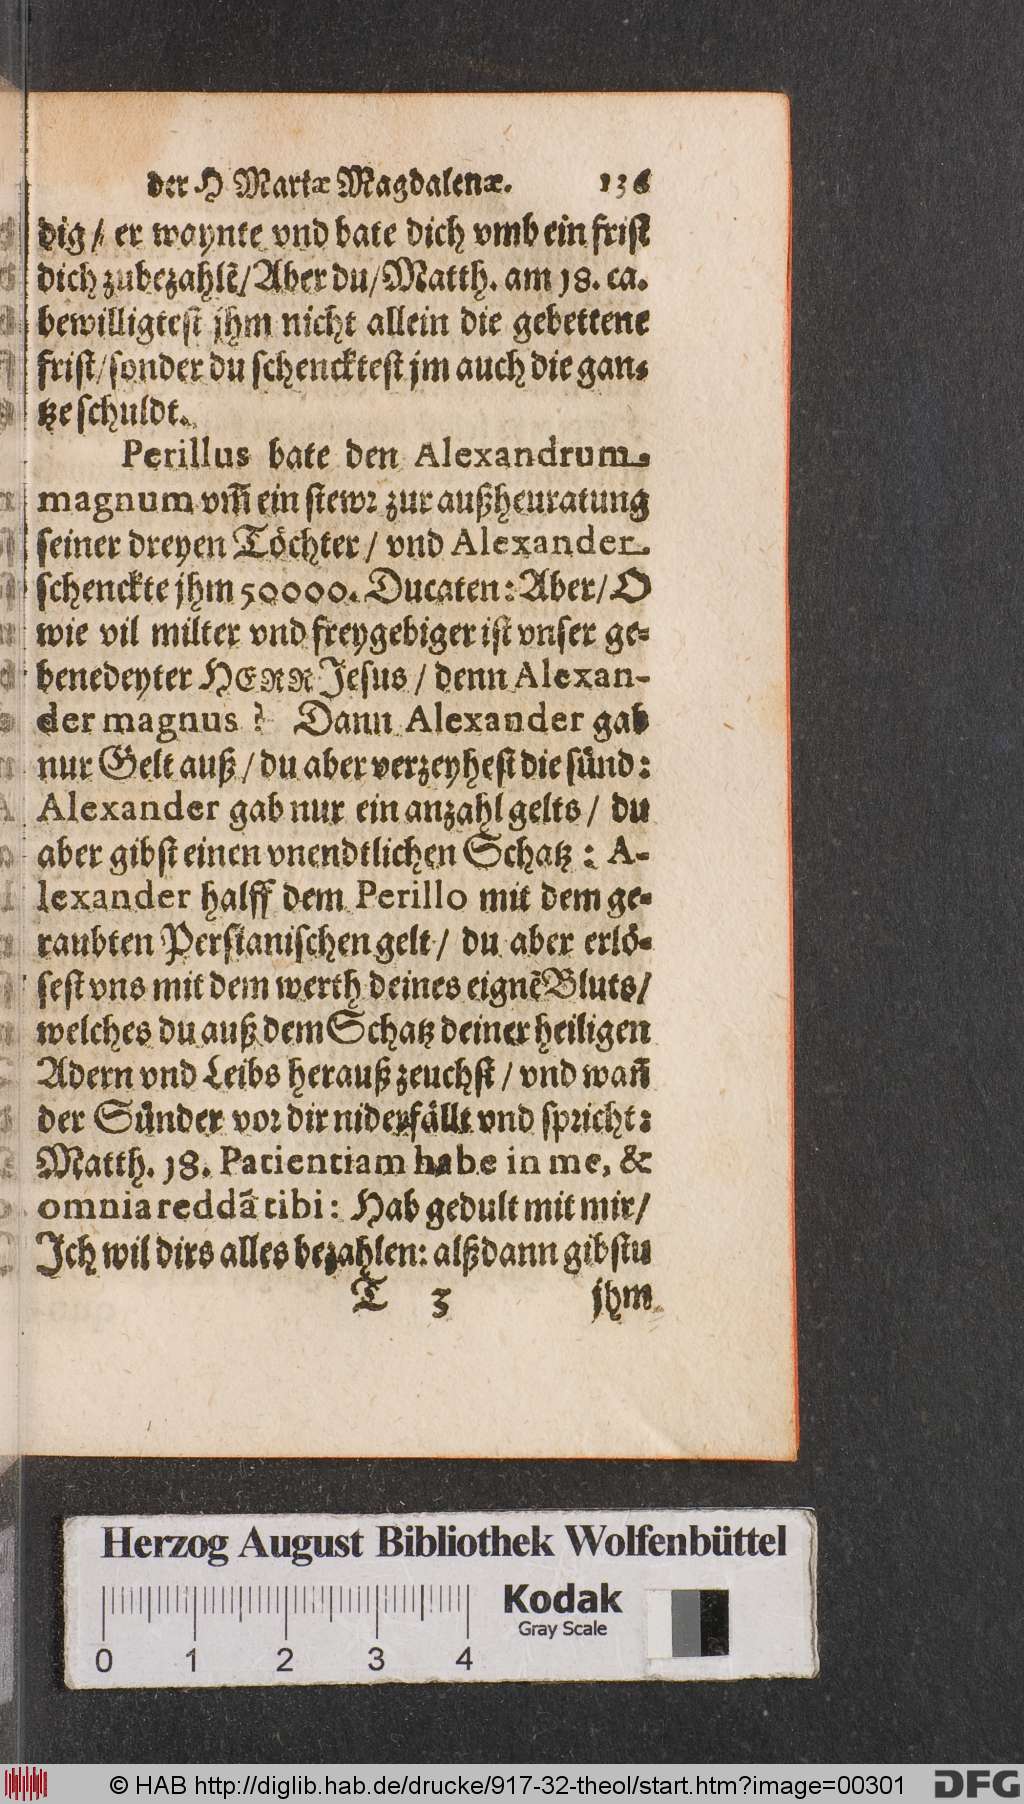 der H Mariæ Magdalenæ. 136
dig / er waynte vnd bate dich vmb ein frist
dich zubezahlẽ / Aber du / Matth. am 18. ca.
bewilligtest jhm nicht allein die gebettene
frist / sonder du schencktest jm auch die gan-
tze schuldt.
Perillus bate den Alexandrum
magnum vm̃ ein stewr zur außheuratung
seiner dreyen Töchter / vnd Alexander
schenckte jhm 50000. Ducaten: Aber / O
wie vil milter vnd freygebiger ist vnser ge-
benedeyter HERR Jesus / denn Alexan-
der magnus? Dann Alexander gab
nur Gelt auß / du aber verzeyhest die sünd:
Alexander gab nur ein anzahl gelts / du
aber gibst einen vnendtlichen Schatz: A-
lexander halff dem Perillo mit dem ge-
raubten Persianischen gelt / du aber erlö-
sest vns mit dem werth deines eignẽ Bluts /
welches du auß dem Schatz deiner heiligen
Adern vnd Leibs herauß zeuchst / vnd wañ
der Sünder vor dir niderfällt vnd spricht:
Matth. 18. Patientiam habe in me, &
omnia reddã tibi: Hab gedult mit mir /
Ich wil dirs alles bezahlen: alßdann gibstu
T 3 jhm
Herzog August Bibliothek Wolfenbüttel
Kodak
Gray Scale
0 1 2 3 4
© HAB http://diglib.hab.de/drucke/917-32-theol/start.htm?image=00301
DFG